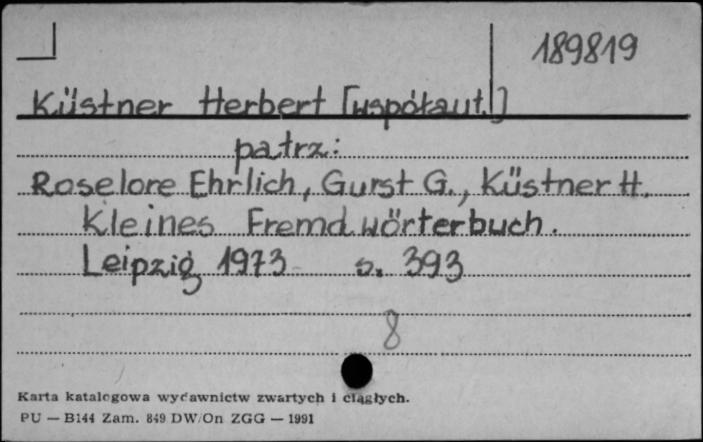 189819
Küstner Herbert [współaut.]
patrz:
Roselore Ehrlich, Gurst G., Küstner H.
Kleines Fremdwörterbuch.
Leipzig 1973 s. 393
8
Karta katalogowa wydawnictw zwartych i ciągłych.
PU — B144 Zam. 849 DW/On ZGG — 1991